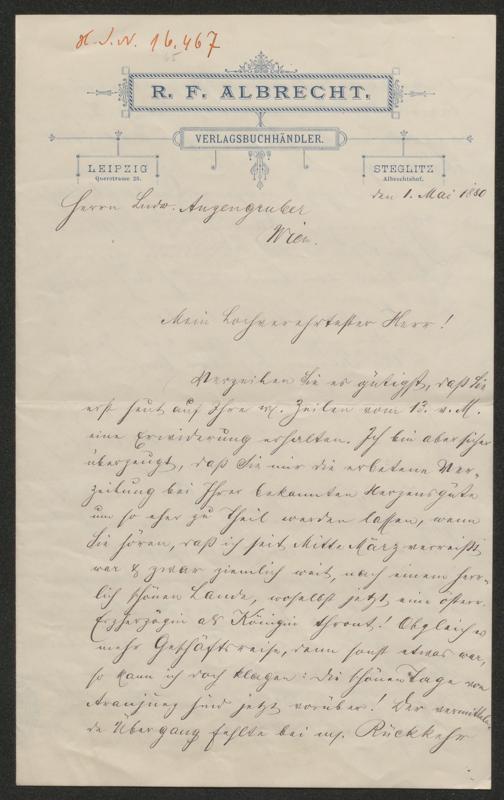 H. I. N. 16.467
R. F. ALBRECHT.
VERLAGSBUCHHÄNDLER.
LEIPZIG
Querstrasse 21.
STEGLITZ
Albrechtshof.
den 1. Mai 1880
Herrn Ludw. Anzengruber
Wien.
Mein hochverehrtester Herr!
Verzeihen Sie es gütigst, daß Sie
erst heut auf Ihre w. Zeilen vom 13. v. M.
eine Erwiderung erhalten. Ich bin aber sicher
überzeugt, daß Sie mir die erbetene Ver-
zeihung bei Ihrer bekannten Herzensgüte
um so eher zu Theil werden lassen, wenn
Sie hören, daß ich seit Mitte März verreist
war & zwar ziemlich weit, nach einem herr-
lich schönen Lande, woselbst jetzt eine österr.
Erzherzogin als Königin thront! Obgleich es
mehr Geschäftsreise, denn sonst etwas war,
so kann ich doch klagen: die schönen Tage von
Aranjuez sind jetzt vorüber! Der vermitteln-
de Übergang fehlte bei m. Rückkehr